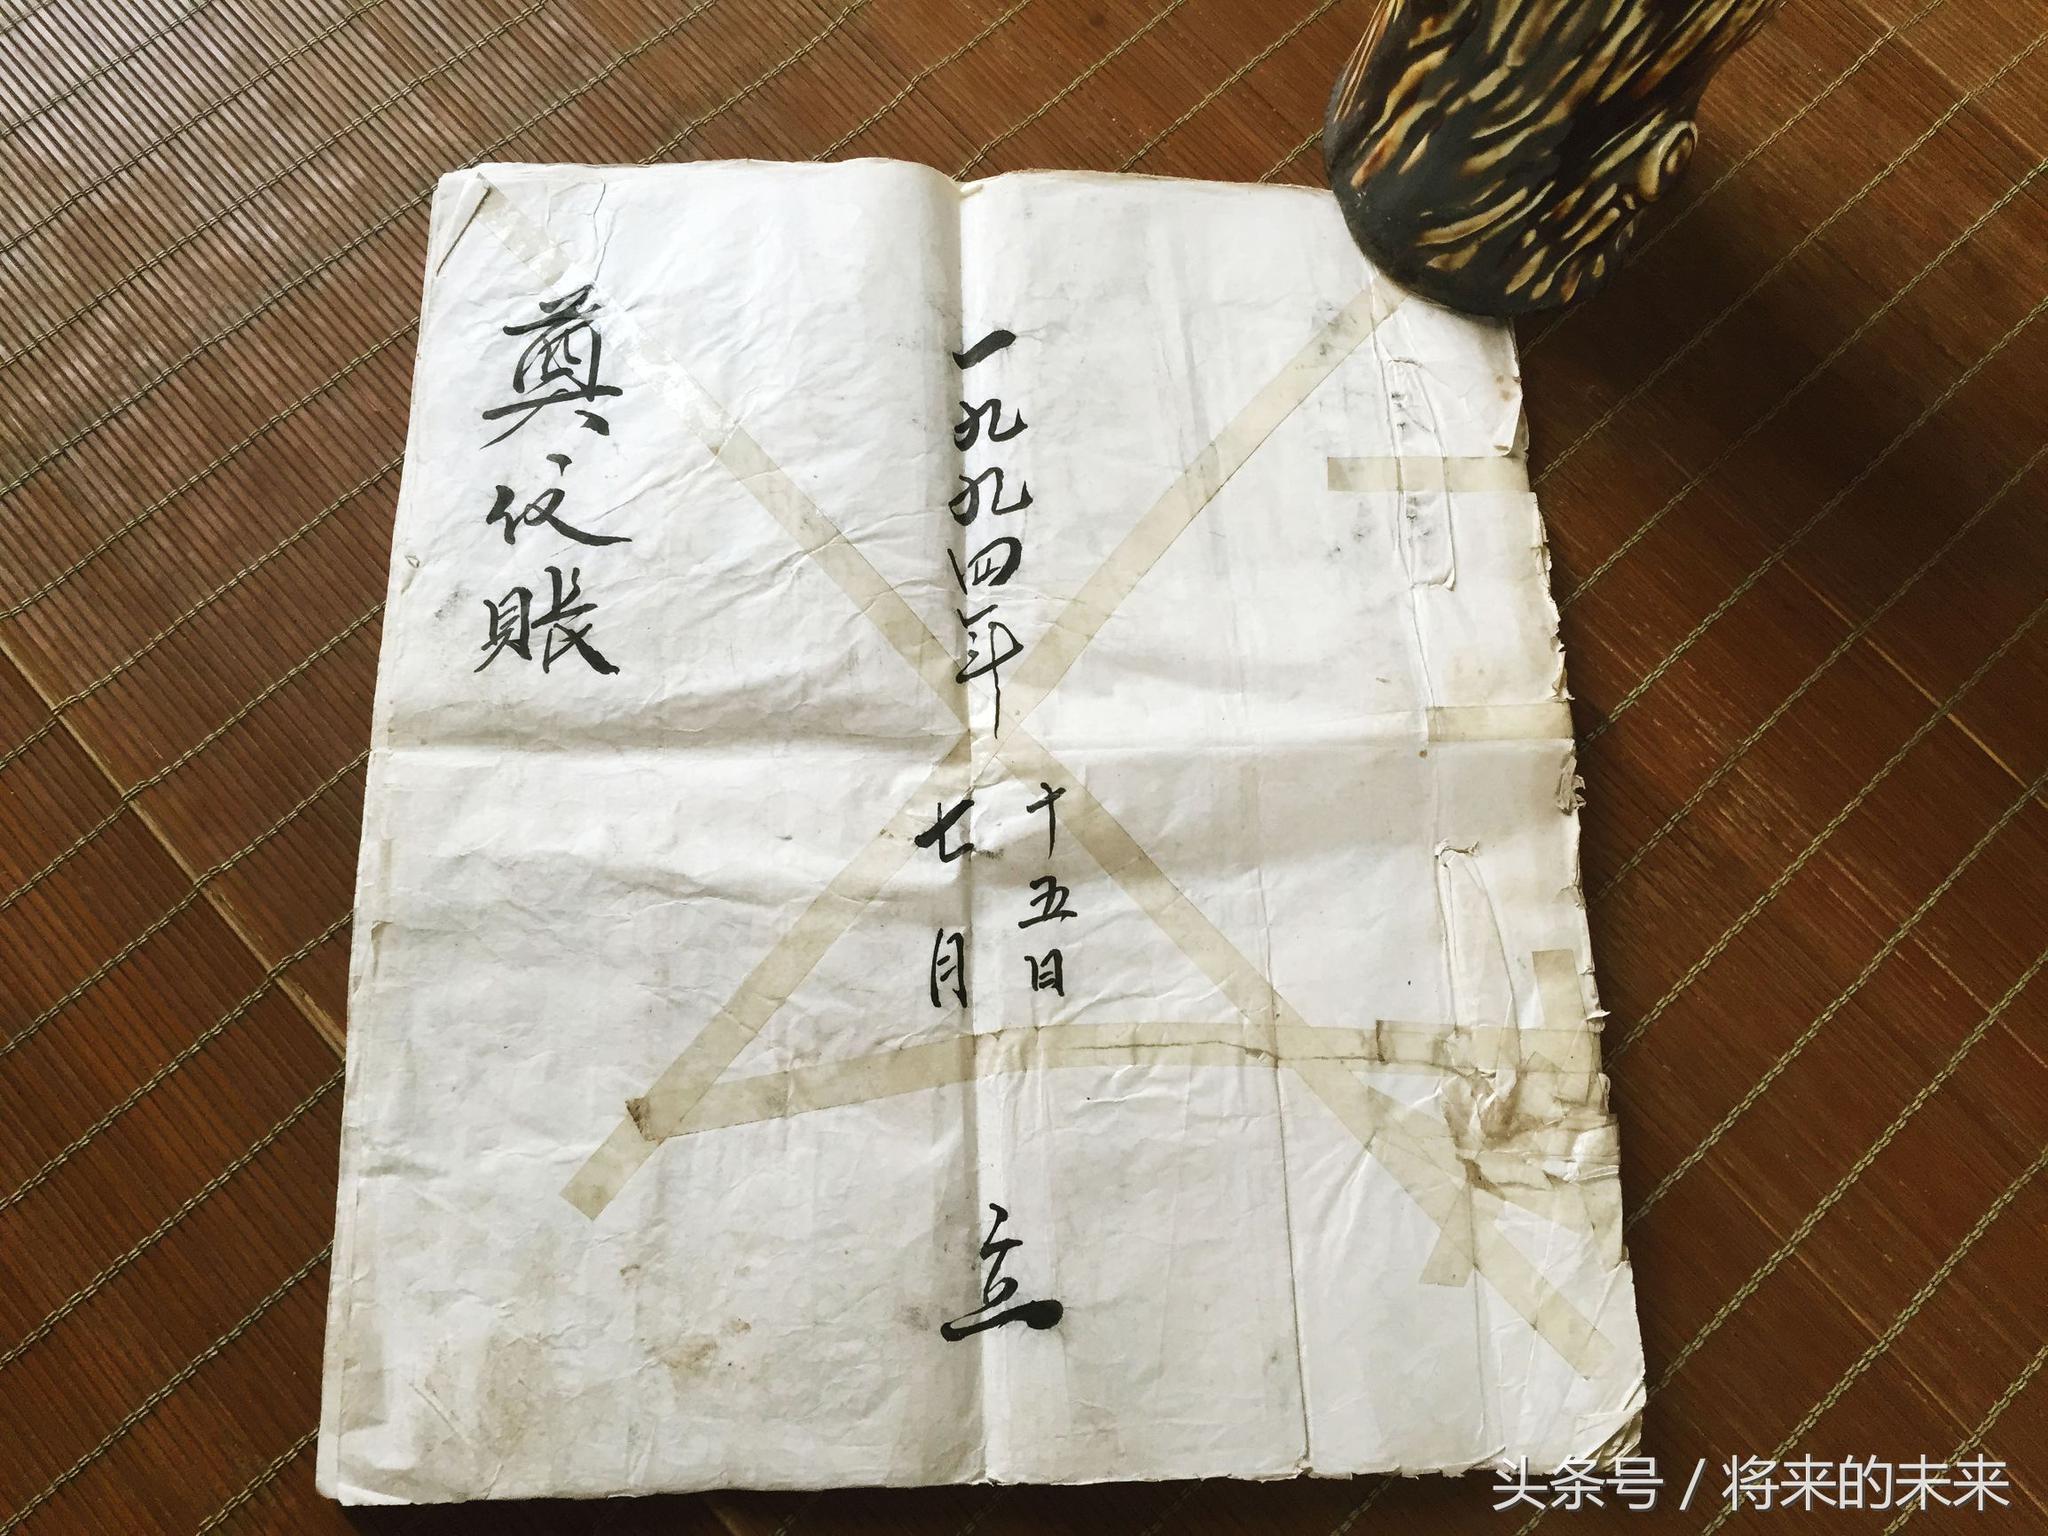 奠仪賬
一九九四年
七月
十五日
立
头条号 / 将来的未来